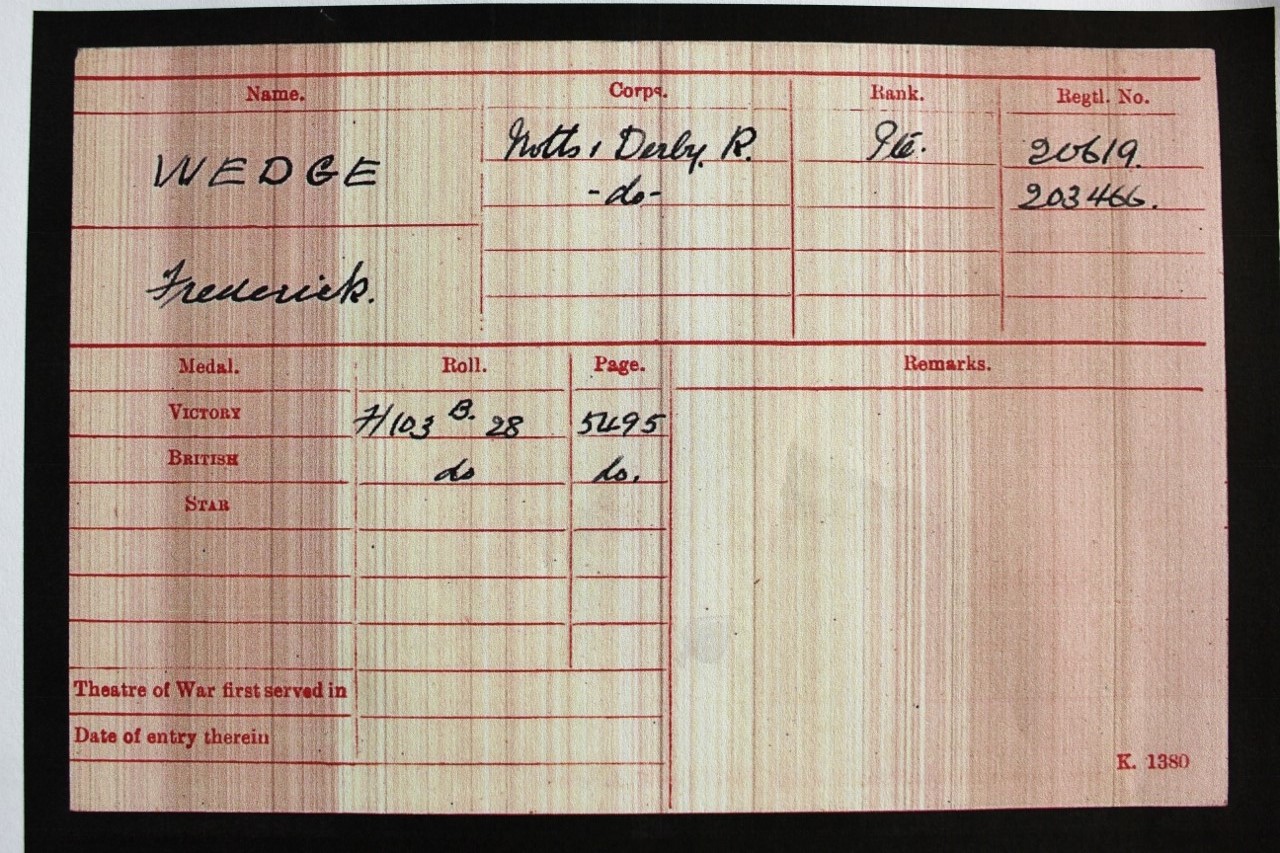 Name. Corps. Rank. Regtl. No.
WEDGE Notts & Derby. R. Pte. 20619.
-do- 203466.
Frederick.
Medal. Roll. Page. Remarks.
VICTORY H/103 B. 28 5495
BRITISH do do.
STAR
Theatre of War first served in
Date of entry therein
K. 1380